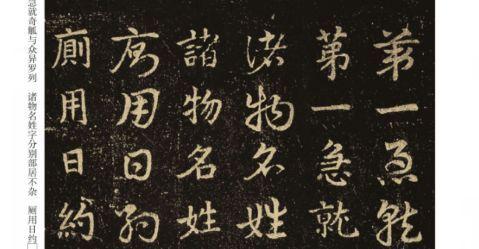 苐一急就
苐一急就
諸物名姓
諸物名姓
廁用日約
廁用日約
急就奇觚与众异罗列 诸物名姓字分别部居不杂 厕用日约